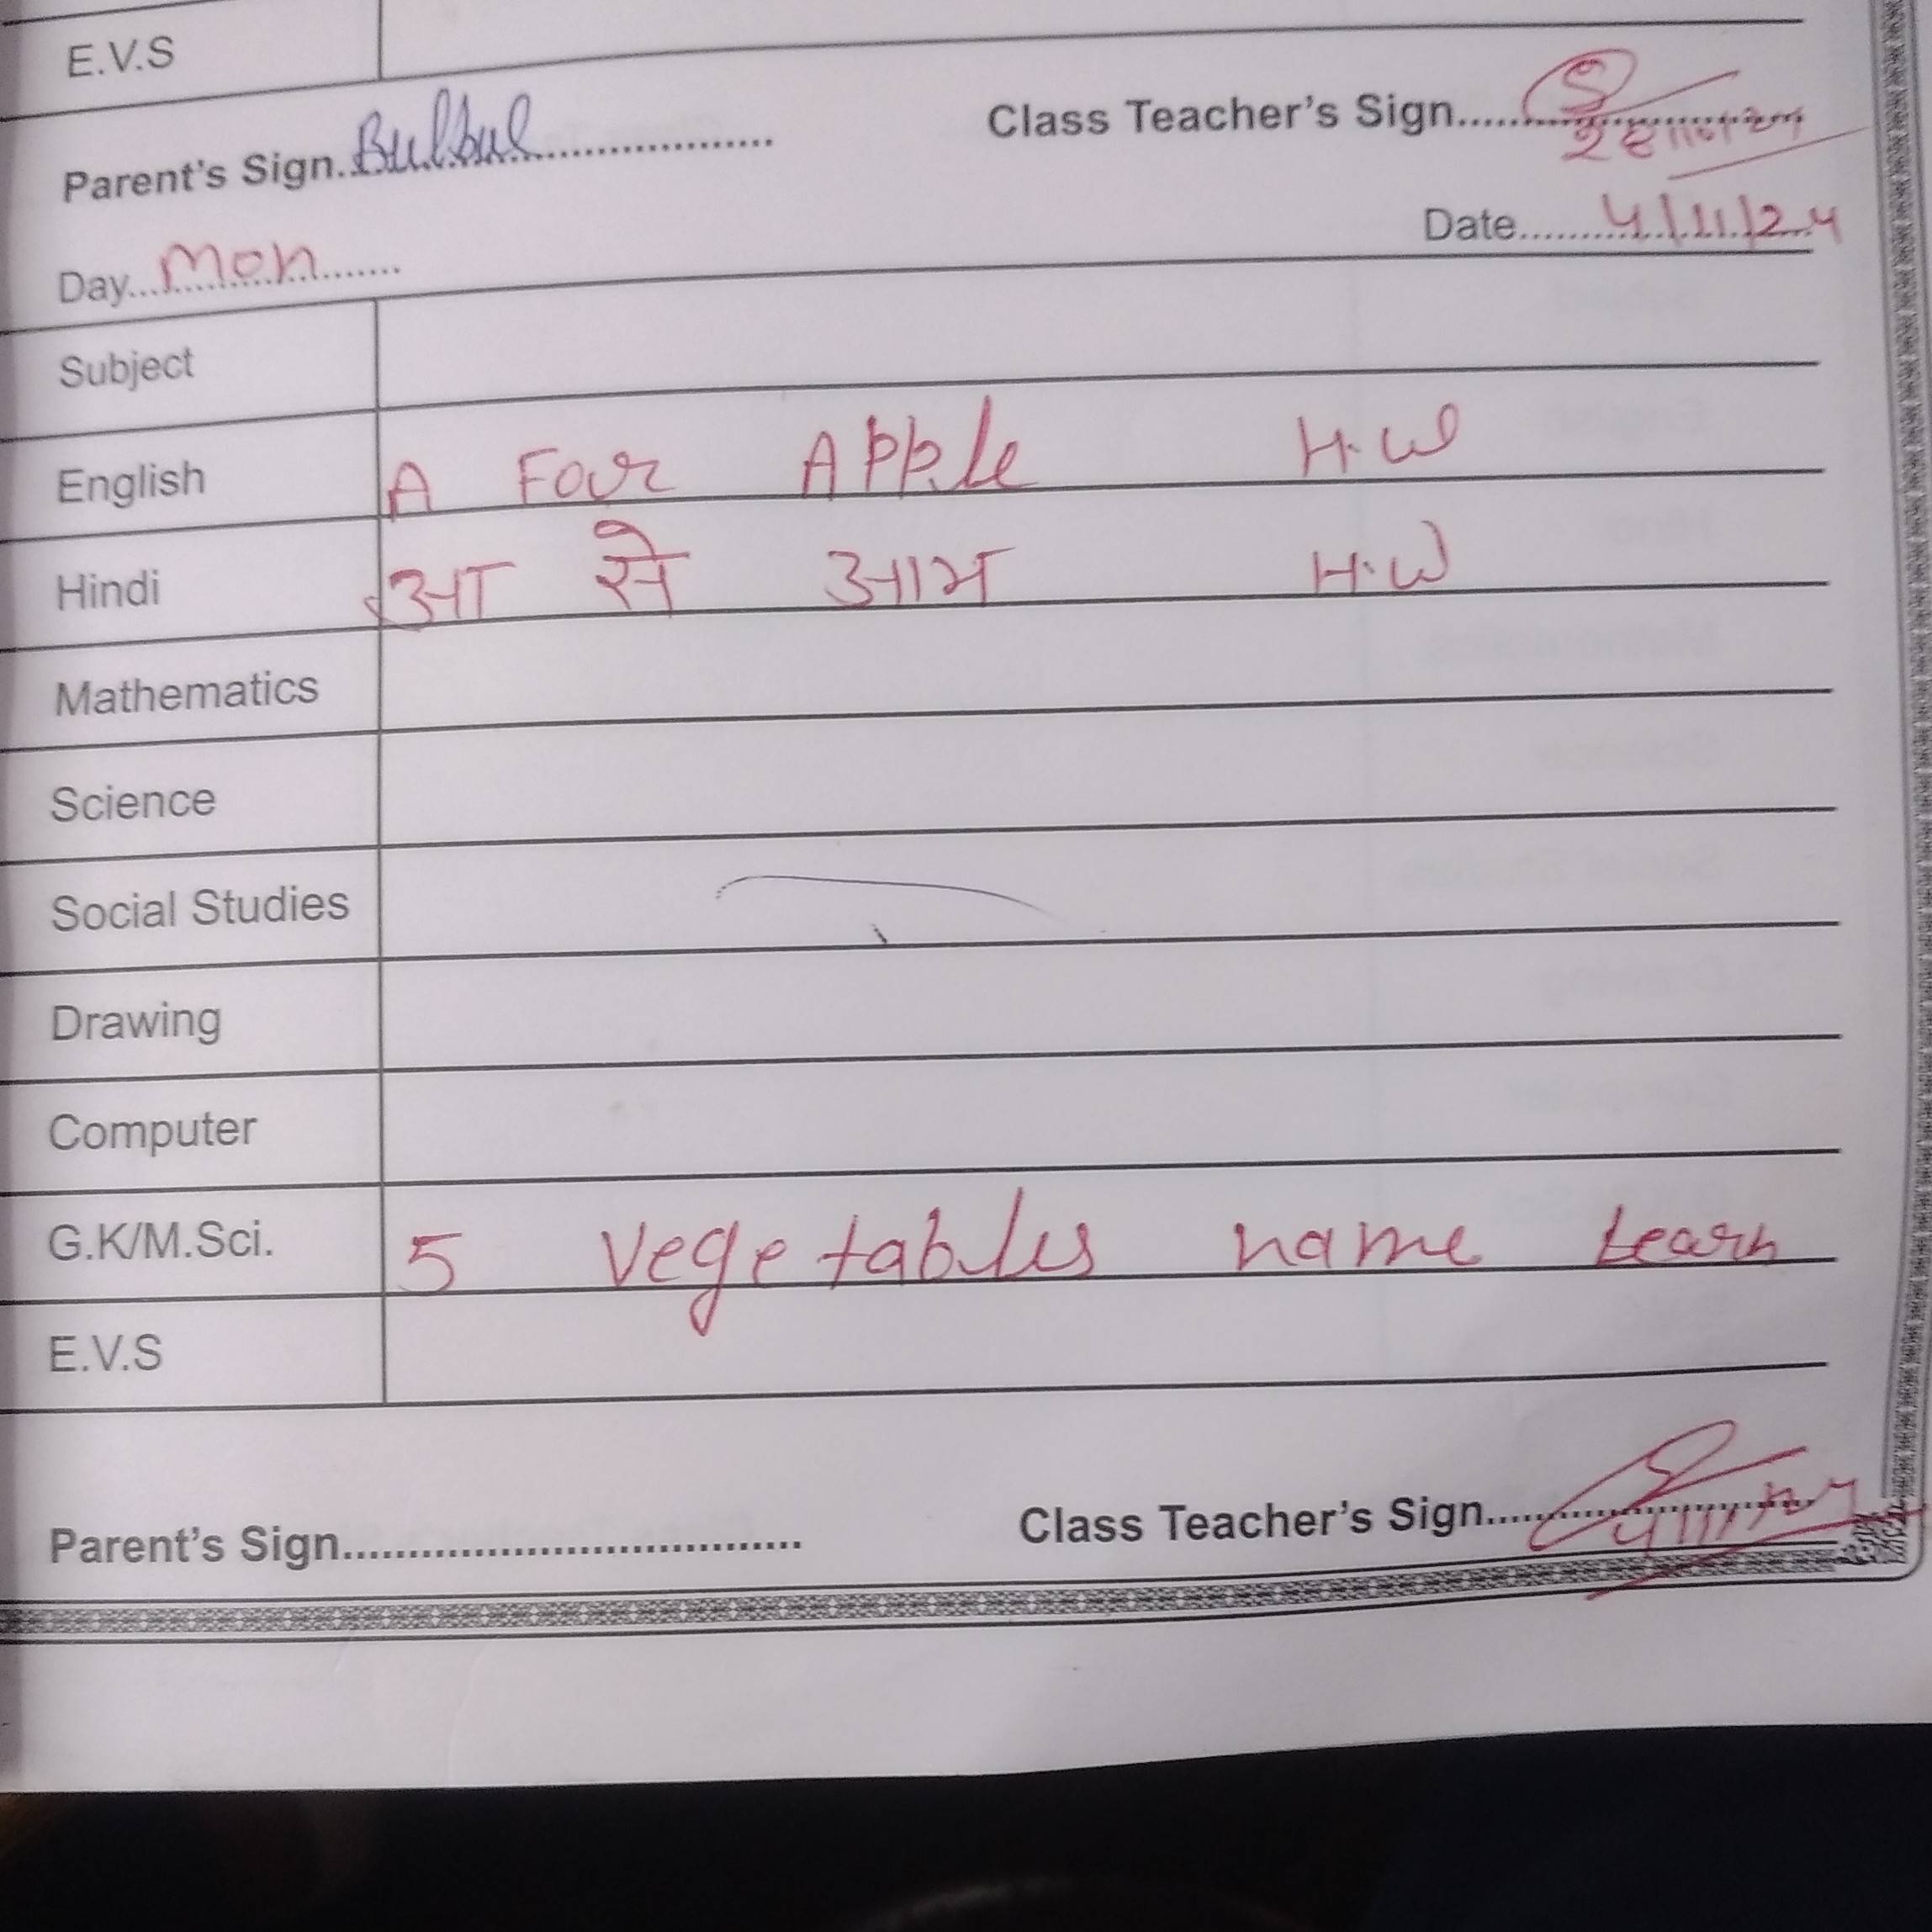 E.V.S
Parent's Sign..Bulbul.................... Class Teacher's Sign..............................
Day...Mon........ Date........4/11/24
Subject
English A Four Apple H.W
Hindi आ से आम H.W
Mathematics
Science
Social Studies
Drawing
Computer
G.K/M.Sci. 5 Vegetables name Learn
E.V.S
Parent's Sign.................................... Class Teacher's Sign..............................